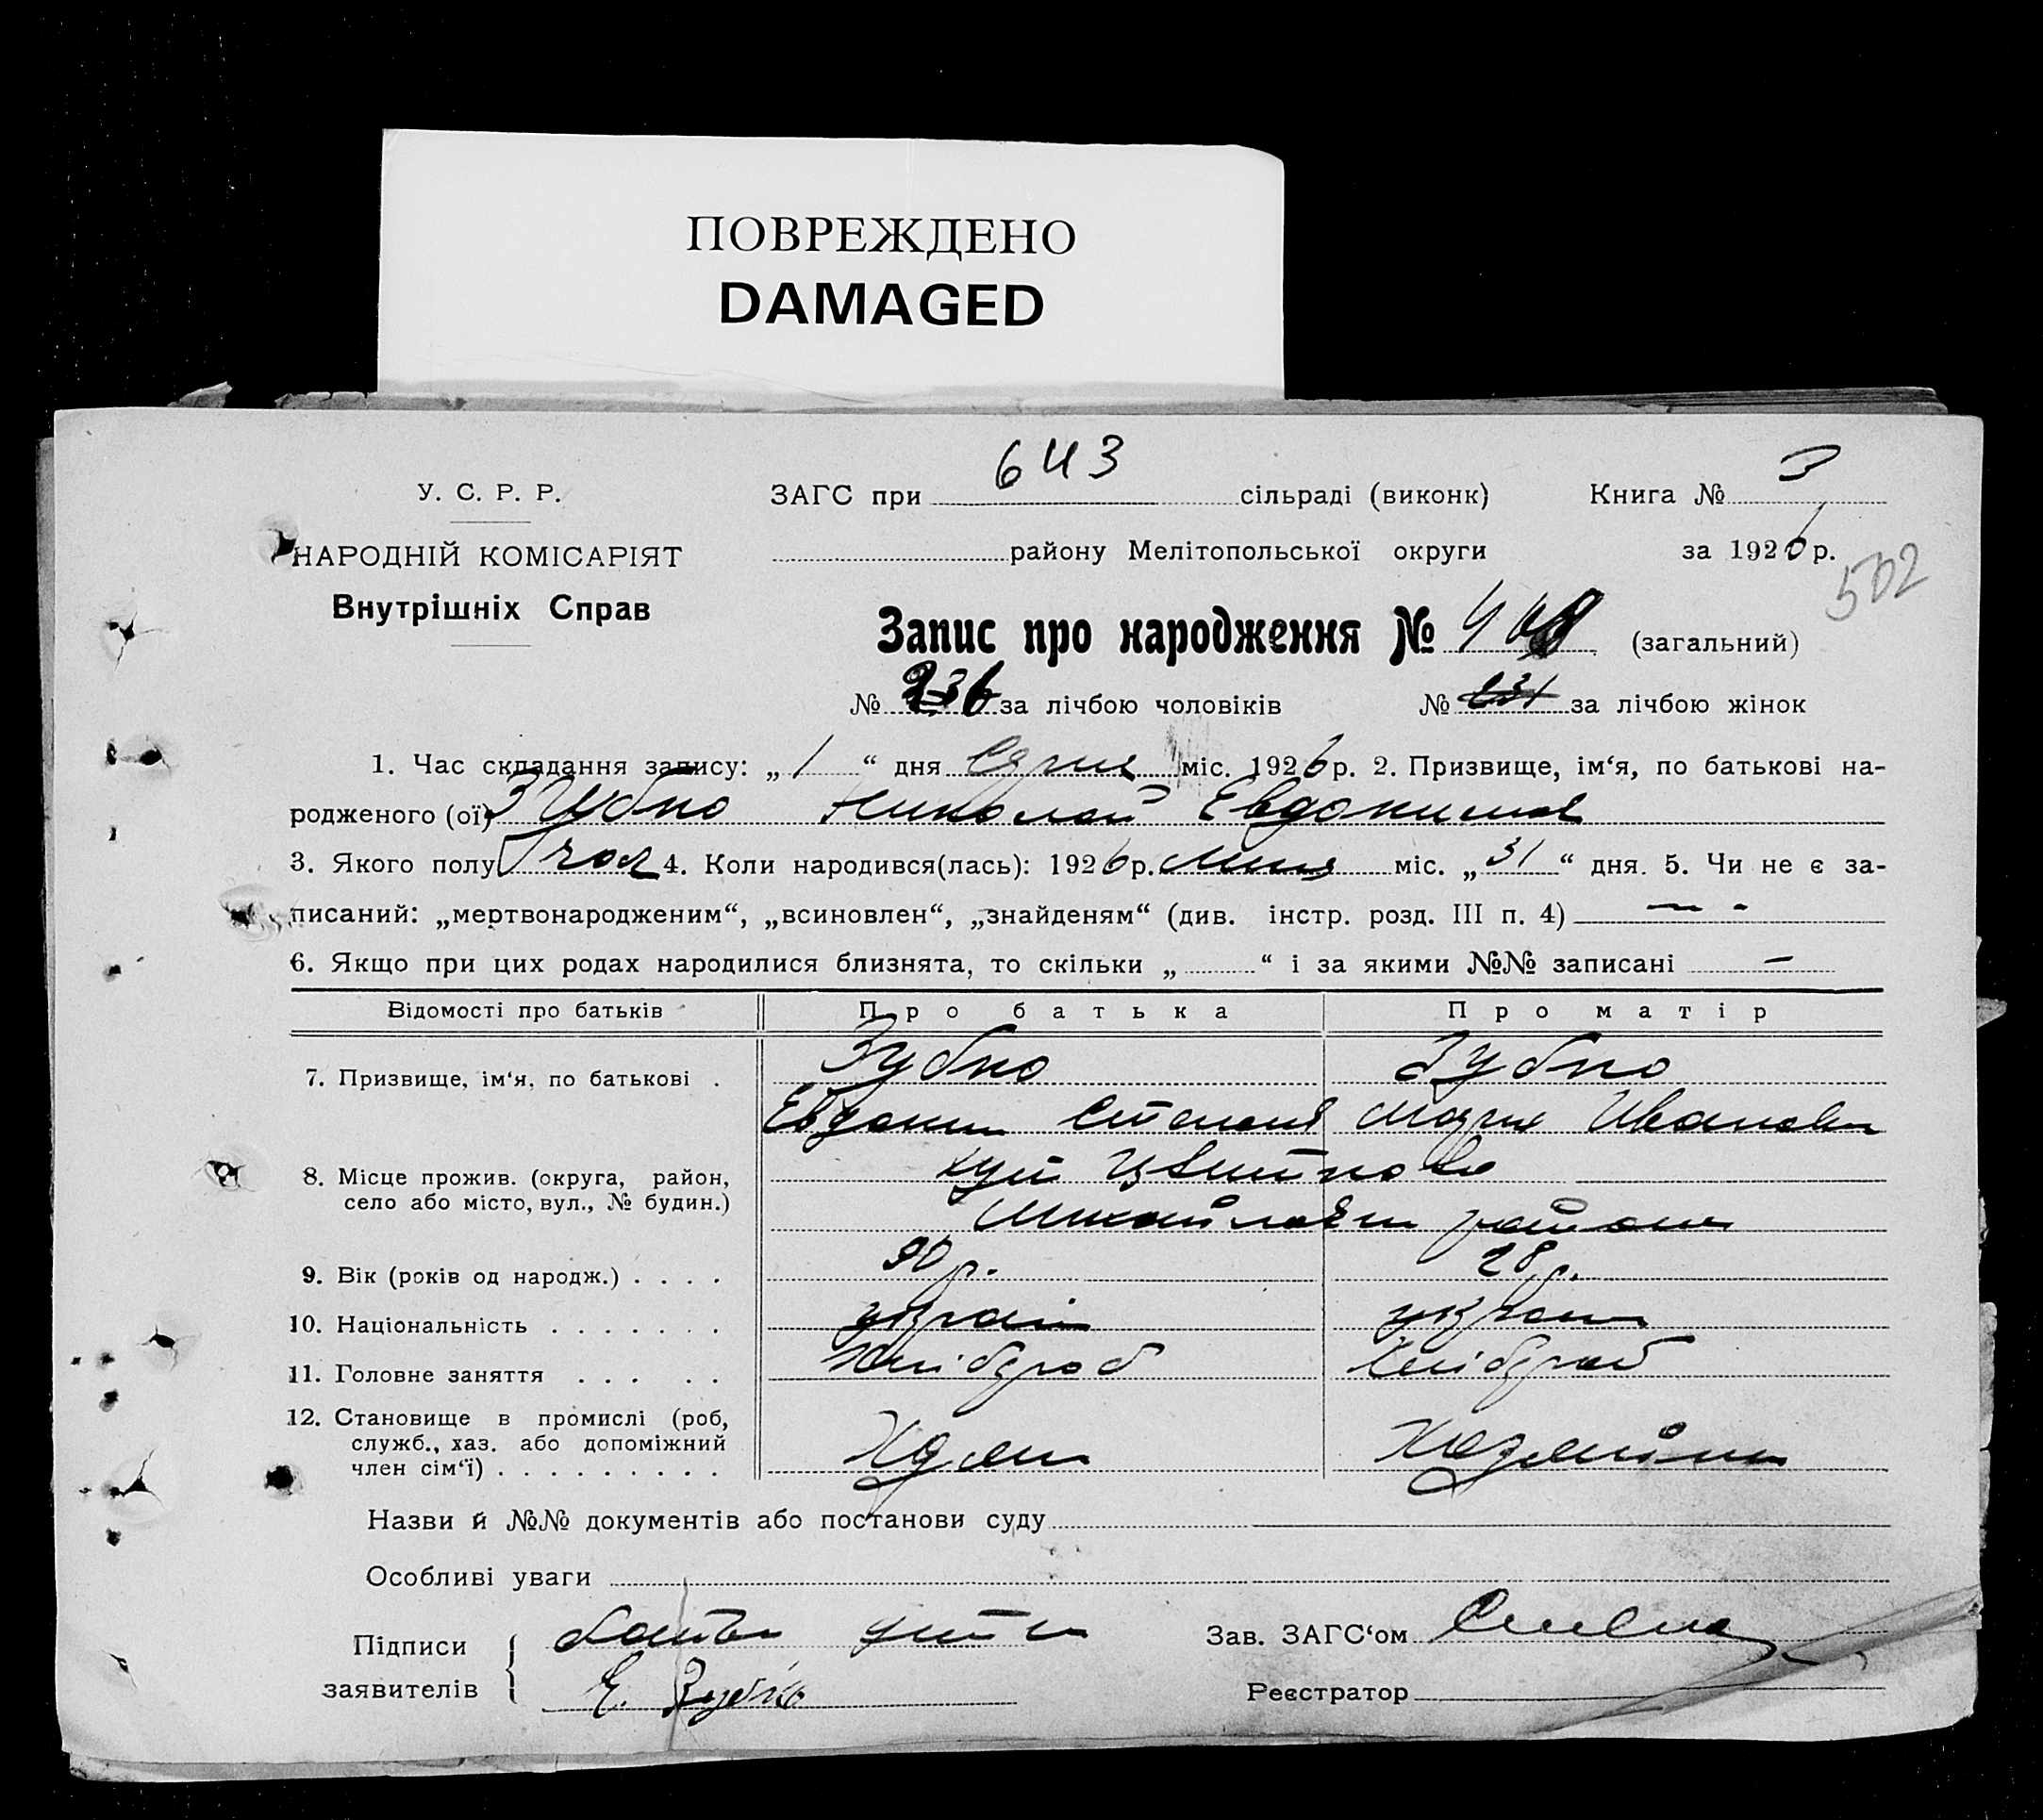 ПОВРЕЖДЕНО
DAMAGED
643
У. С. Р. Р.
ЗАГС при сільраді (виконк)
Книга № 3
НАРОДНІЙ КОМІСАРІЯТ
району Мелітопольської округи
за 1926 р.
502
Внутрішніх Справ
Запис про народження № (загальний)
№ 236 за лічбою чоловіків № 231 за лічбою жінок
1. Час складання запису: „ 1 “ дня міс. 1926 р. 2. Призвище, ім‘я, по батькові на-
родженого (ої) Зубко Николай Евдокимов
3. Якого полу чол 4. Коли народився(лась): 1926 р. міс. „ 31 “ дня. 5. Чи не є за-
писаний: „мертвонародженим“, „всиновлен“, „знайденям“ (див. інстр. розд. III п. 4) —
6. Якщо при цих родах народилися близнята, то скільки „ “ і за якими №№ записані —
Відомості про батьків Про батька Про матір
7. Призвище, ім‘я, по батькові . Зубко Зубко
Евдоким Мария Иванов
8. Місце прожив. (округа, район,
село або місто, вул., № будин.)
хут Цвитково
район
9. Вік (років од народж.) . . . . 30 р. 28 р.
10. Національність . . . . . . . украін украін
11. Головне заняття . . . . . Хліброб Хліброб
12. Становище в промислі (роб,
служб., хаз. або допоміжний
член сім‘ї) . . . . . . . . .
Назви й №№ документів або постанови суду
Особливі уваги
Підписи
заявителів
Е. Зубко
Зав. ЗАГС‘ом
Реєстратор